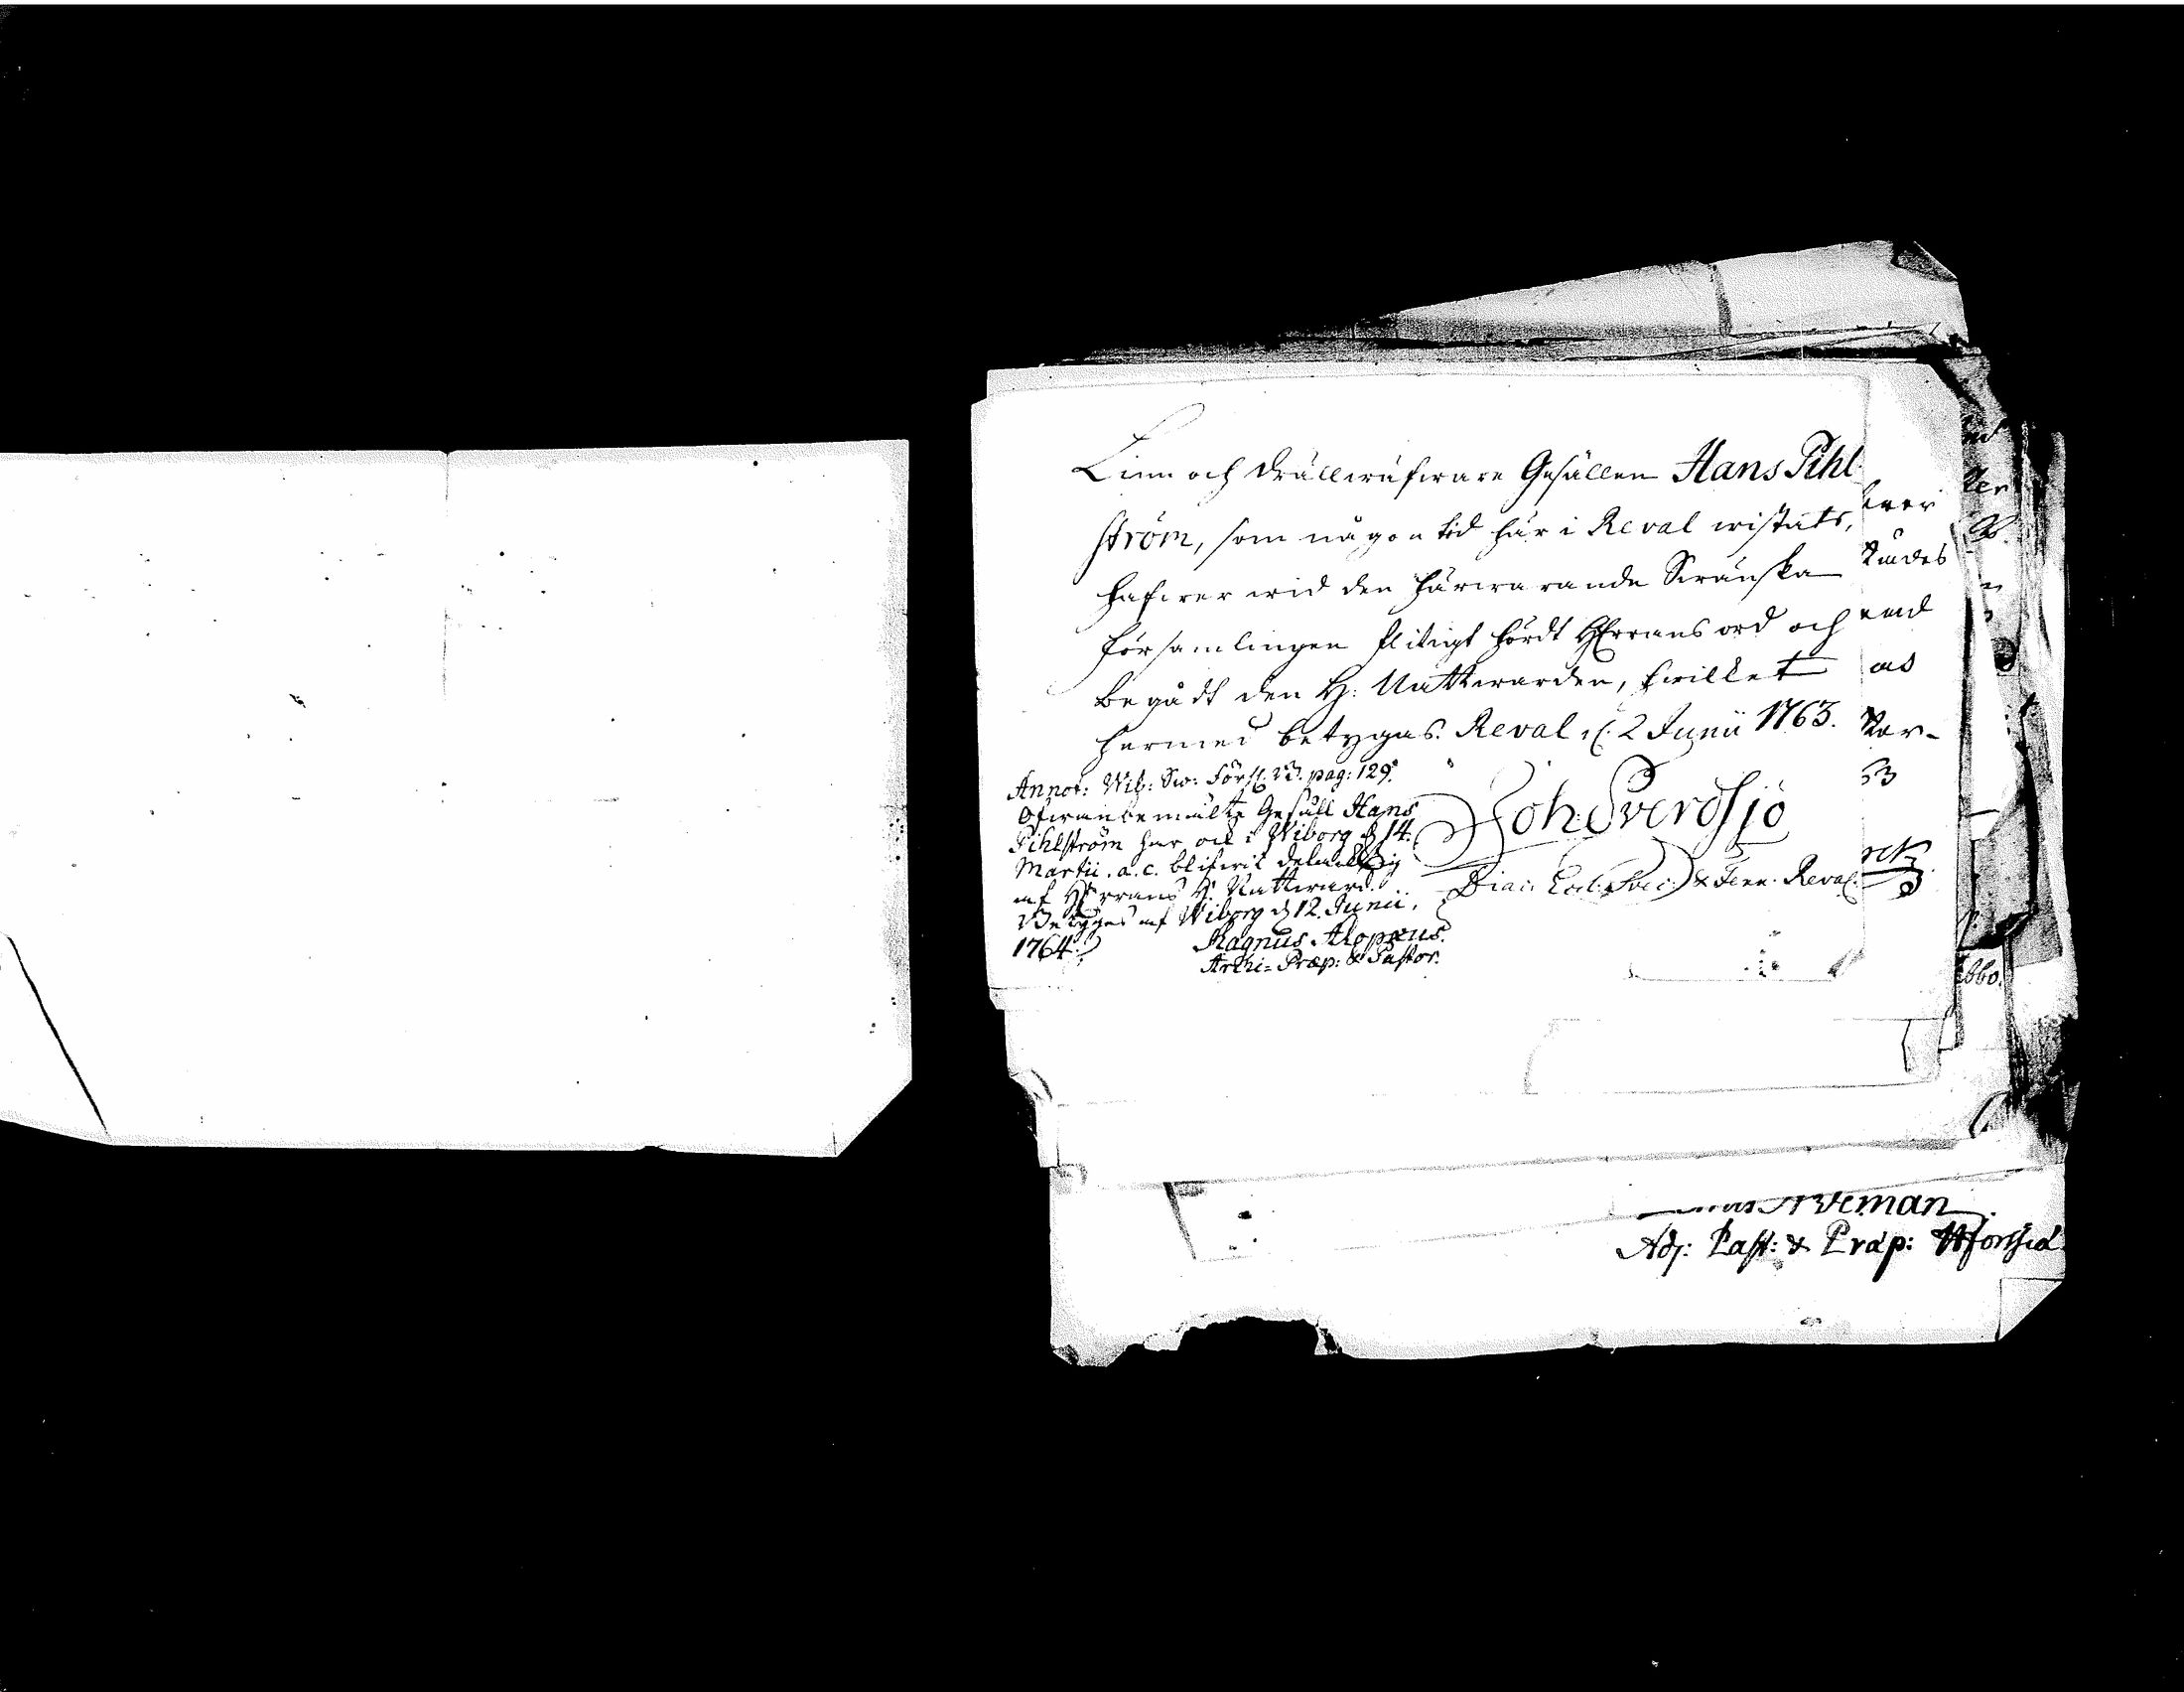 Linn och Drällwäfware Gesällen Hans Pihl
ström, som någon tid här i Reval wistats,
hafwer wid den härwarande Swänska
församlingen flitigt hördt HErrans ord och
begådt den H: Nattwarden, hwilket
hermed betygas. Reval d. 2 Junii 1763.
Joh: Sverdsjö
Diac: Eccl: Svec: & Fenn. Reval:
Annot: Wib: Sw: Förs: pag: 129.
Ofwanbemälte Gesäll Hans
Pihlström har ock i Wiborg d 14.
Martii. a. c. blifwit delacktig
af HErrans H. Nattward.
Betyges af Wiborg d 12. Junii.
1764.
Magnus Alopæus.
Archi-Præp: & Pastor.
ver
ändes
end
as
Var-
53
bbo.
Adj: Past: & Præp: